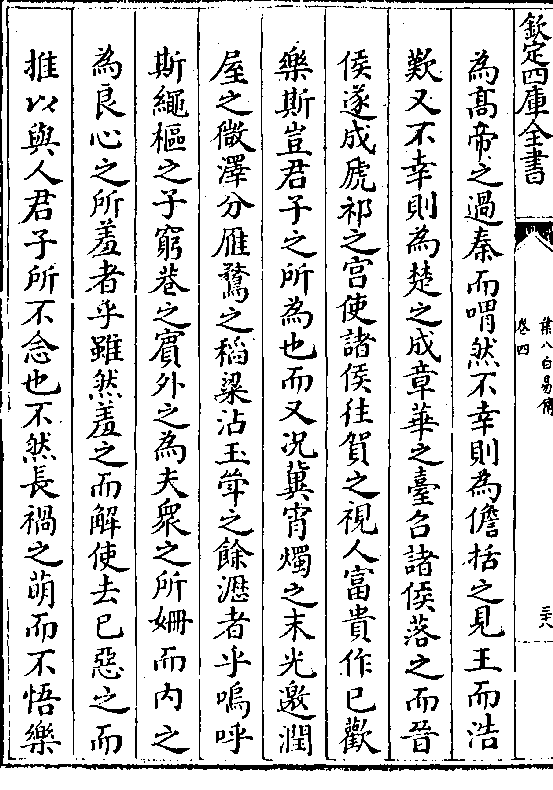 欽定四庫全書
葉八白易傳
卷四
三六
為髙帝之過秦而喟然不幸則為儋括之見王而浩
歎又不幸則為楚之成章華之臺召諸侯落之而晉
侯遂成虒祁之宫使諸侯往賀之視人富貴作已歡
樂斯豈君子之所為也而又况冀宵燭之末光邀潤
屋之微澤分雁鶩之稻粱沾玉斝之餘瀝者乎嗚呼
斯繩樞之子窮巷之賓外之為夫衆之所姍而内之
為良心之所羞者乎雖然羞之而解使去已惡之而
推以與人君子所不念也不然長禍之萌而不悟樂